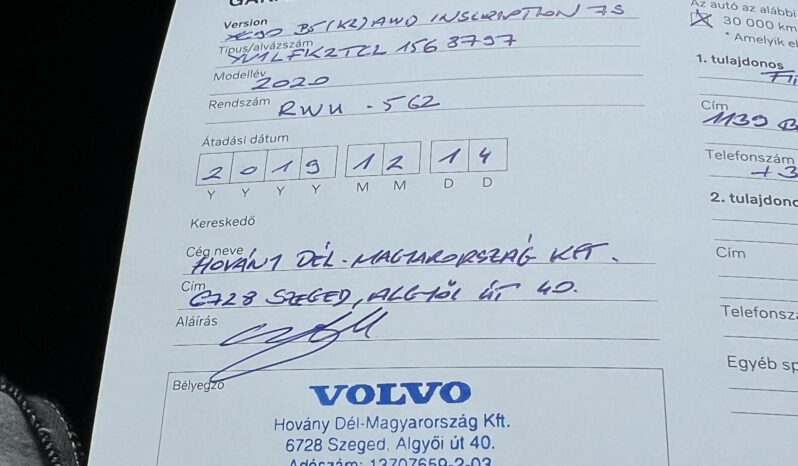 Version
XC90 B5 (K2) AWD INSCRIPTION 7S
Típus/alvázszám
YV1LFK2TCL1563797
Modellév
2020
Rendszám
RWU-562
Átadási dátum
2 0 1 9 1 2 1 4
Y Y Y Y M M D D
Kereskedő
Cég neve
HOVÁNY DÉL-MAGYARORSZÁG KFT.
Cím
6728 SZEGED, ALGYŐI ÚT 40.
Aláírás
Bélyegző
VOLVO
Hovány Dél-Magyarország Kft.
6728 Szeged, Algyői út 40.
Adószám: 13707659-2-03
Az autó az alábbi
30 000 km
* Amelyik el
1. tulajdonos
Cím
1139 B
Telefonszám
+3
2. tulajdono
Cím
Telefonsz
Egyéb sp